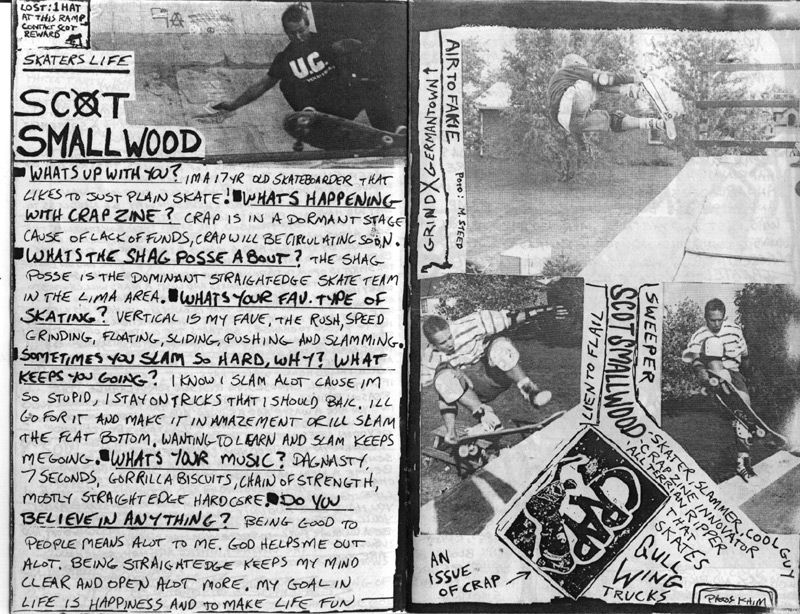 LOST: 1 HAT
AT THIS RAMP
CONTACT SCOT
REWARD
SKATERS LIFE
SCOT
SMALLWOOD
U.C.
WHATS UP WITH YOU? IM A 17 YR OLD SKATEBOARDER THAT
LIKES TO JUST PLAIN SKATE! WHATS HAPPENING
WITH CRAP ZINE? CRAP IS IN A DORMANT STAGE
CAUSE OF LACK OF FUNDS, CRAP WILL BE CIRCULATING SOON.
WHATS THE SHAG POSSE ABOUT? THE SHAG
POSSE IS THE DOMINANT STRAIGHTEDGE SKATE TEAM
IN THE LIMA AREA. WHATS YOUR FAV. TYPE OF
SKATING? VERTICAL IS MY FAVE, THE RUSH, SPEED
GRINDING, FLOATING, SLIDING, PUSHING AND SLAMMING.
SOMETIMES YOU SLAM SO HARD, WHY? WHAT
KEEPS YOU GOING? I KNOW I SLAM ALOT CAUSE IM
SO STUPID, I STAY ON TRICKS THAT I SHOULD BAIL. ILL
GO FOR IT AND MAKE IT IN AMAZEMENT OR ILL SLAM
THE FLAT BOTTOM, WANTING TO LEARN AND SLAM KEEPS
ME GOING. WHATS YOUR MUSIC? DAGNASTY,
7 SECONDS, GORRILLA BISCUITS, CHAIN OF STRENGTH,
MOSTLY STRAIGHT EDGE HARDCORE. DO YOU
BELIEVE IN ANYTHING? BEING GOOD TO
PEOPLE MEANS ALOT TO ME. GOD HELPS ME OUT
ALOT. BEING STRAIGHTEDGE KEEPS MY MIND
CLEAR AND OPEN ALOT MORE. MY GOAL IN
LIFE IS HAPPINESS AND TO MAKE LIFE FUN
AIR TO FAKIE
GRIND X GERMANTOWN
POTO: M. STEED
SWEEPER
SCOT SMALLWOOD
LIEN TO FLAIL
-SKATER, SLAMMER, COOL GUY
-CRAPZINE INNOVATOR
-ALL TERRIAN RIPPER
THAT
SKATES
GULL
WING
TRUCKS
CRAP
AN
ISSUE
OF CRAP